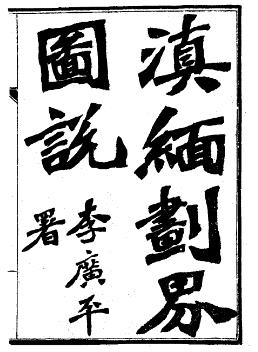 滇緬劃界
圖説
李廣平
署